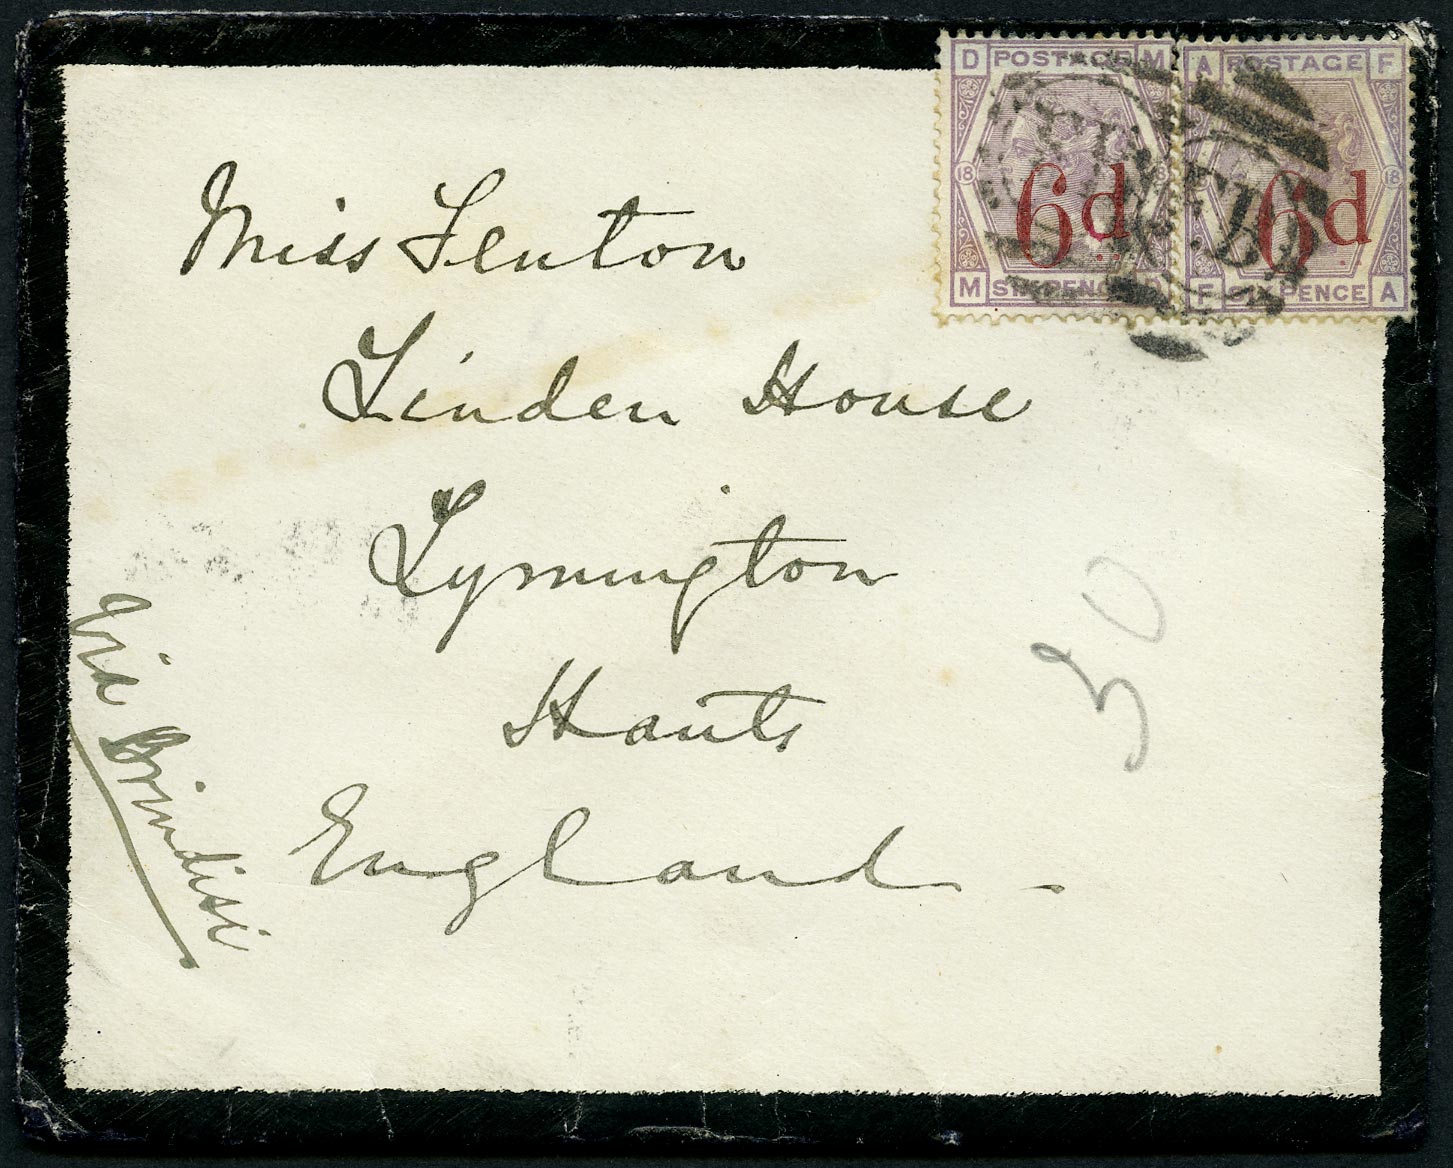 D POSTAGE M
A POSTAGE F
18
18
6d
6d
M SIXPENCE D
F SIXPENCE A
Miss Fenton
Linden House
Lymington
Hants
England -
Via Brindisi
50